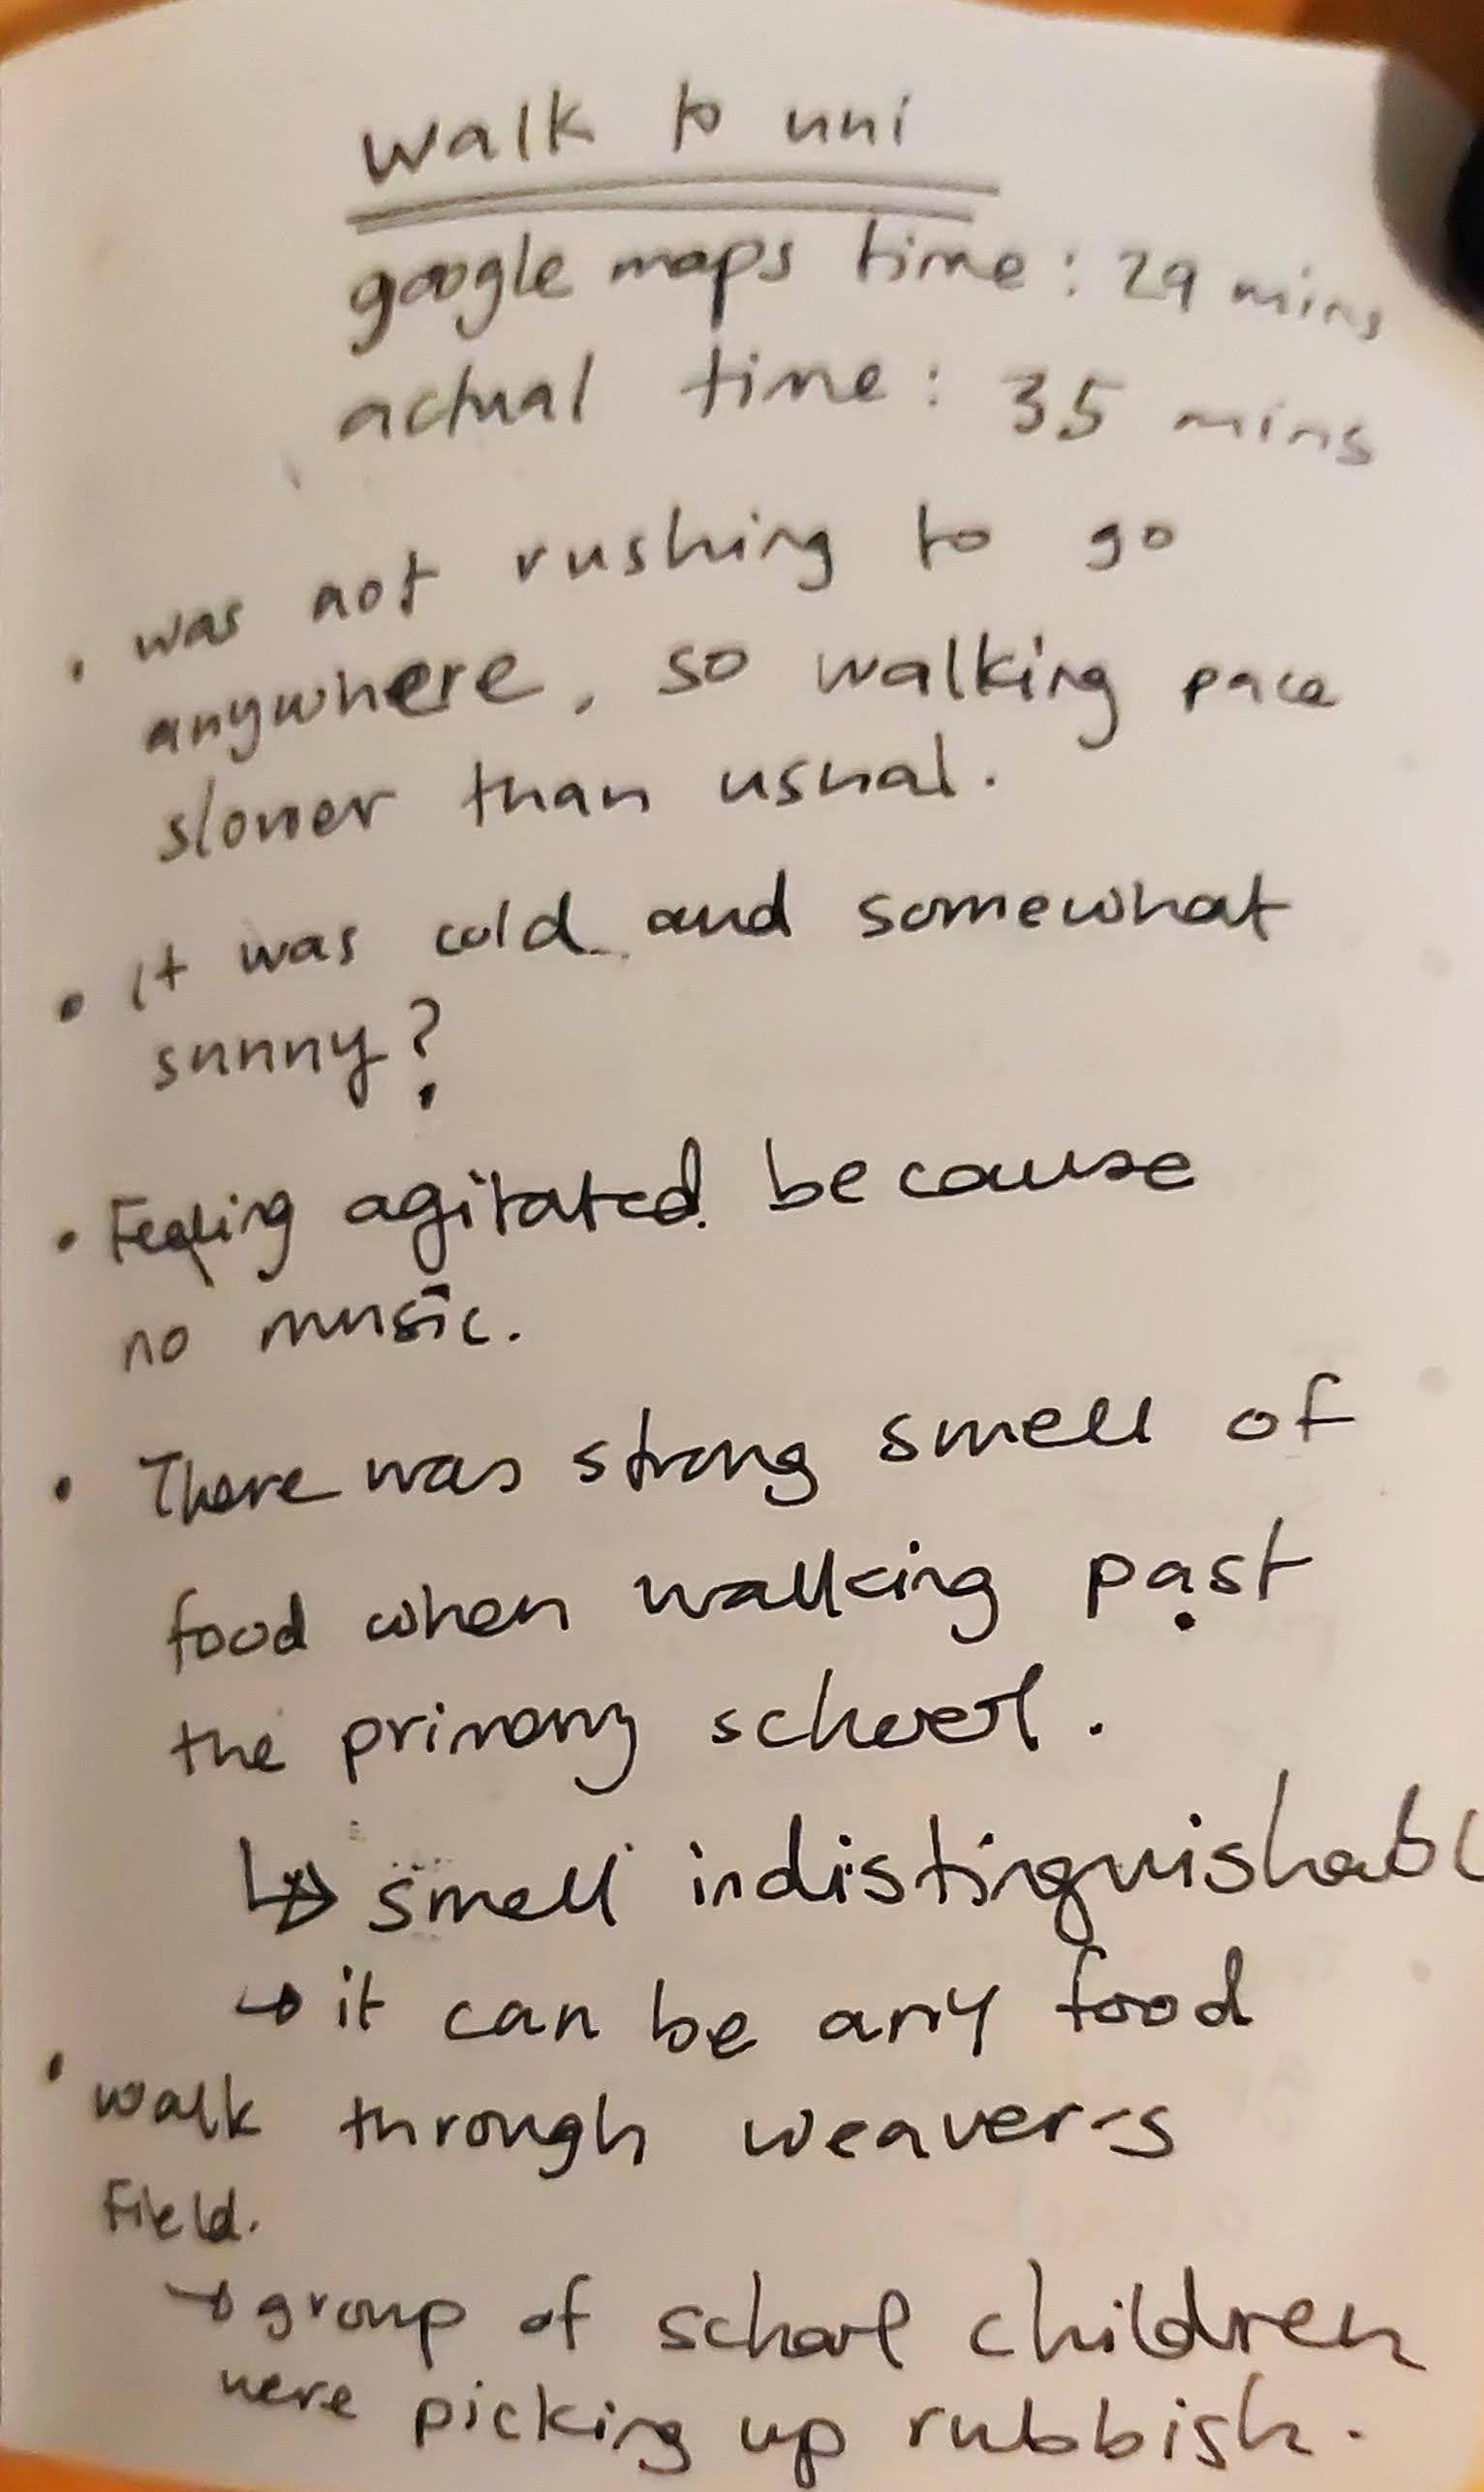 walk to uni
google maps time : 29 mins
actual time : 35 mins
• was not rushing to go
anywhere, so walking pace
slower than usual.
• It was cold and somewhat
sunny?
• Feeling agitated because
no music.
• There was strong smell of
food when walking past
the primary school.
↳ smell indistinguishabl
→ it can be any food
• walk through weaver-s
Field.
→ group of school children
were picking up rubbish.